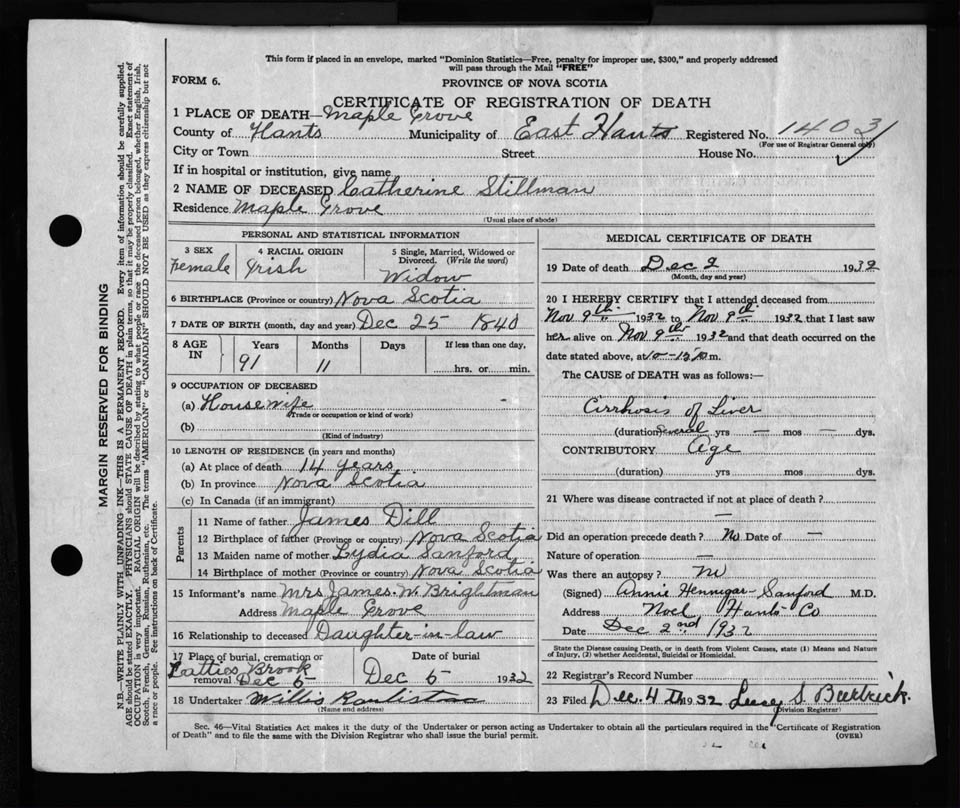 This form if placed in an envelope, marked "Dominion Statistics—Free, penalty for improper use, $300," and properly addressed
will pass through the Mail "FREE"
FORM 6.
PROVINCE OF NOVA SCOTIA
CERTIFICATE OF REGISTRATION OF DEATH
1 PLACE OF DEATH—Maple Grove
County of Hants Municipality of East Hants Registered No. 1403
(For use of Registrar General only)
City or Town Street House No.
If in hospital or institution, give name
2 NAME OF DECEASED Catherine Stillman
Residence Maple Grove
(Usual place of abode)
PERSONAL AND STATISTICAL INFORMATION
3 SEX 4 RACIAL ORIGIN 5 Single, Married, Widowed or
Divorced. (Write the word)
Female Irish Widow
6 BIRTHPLACE (Province or country) Nova Scotia
7 DATE OF BIRTH (month, day and year) Dec 25 1840
8 AGE IN Years Months Days If less than one day,
91 11 hrs. or min.
9 OCCUPATION OF DECEASED
(a) Housewife
(Trade or occupation or kind of work)
(b)
(Kind of industry)
10 LENGTH OF RESIDENCE (in years and months)
(a) At place of death 14 years
(b) In province Nova Scotia
(c) In Canada (if an immigrant)
Parents
11 Name of father James Dill
12 Birthplace of father (Province or country) Nova Scotia
13 Maiden name of mother Lydia Sanford
14 Birthplace of mother (Province or country) Nova Scotia
15 Informant's name Mrs James W. Brightman
Address Maple Grove
16 Relationship to deceased Daughter-in-law
17 Place of burial, cremation or removal Date of burial
Latties Brook
Dec 5 Dec 5 1932
18 Undertaker Willis
(Name and address)
MEDICAL CERTIFICATE OF DEATH
19 Date of death Dec 2 1932
(Month, day and year)
20 I HEREBY CERTIFY that I attended deceased from
Nov 9th 1932 to Nov 9th 1932 that I last saw
her alive on Nov 9th 1932 and that death occurred on the
date stated above, at 10-15 m.
The CAUSE of DEATH was as follows:—
Cirrhosis of Liver
(duration) Several yrs — mos — dys.
CONTRIBUTORY Age
(duration) yrs mos dys.
21 Where was disease contracted if not at place of death?
—
Did an operation precede death? No Date of —
Nature of operation —
Was there an autopsy? no
(Signed) Annie Hennigar-Sanford M.D.
Address Noel Hants Co
Date Dec 2nd 1932
State the Disease causing Death, or in death from Violent Causes, state (1) Means and Nature
of Injury, (2) whether Accidental, Suicidal or Homicidal.
22 Registrar's Record Number
23 Filed Dec. 4th 1932 Lucy S.
(Division Registrar)
Sec. 46—Vital Statistics Act makes it the duty of the Undertaker or person acting as Undertaker to obtain all the particulars required in the "Certificate of Registration
of Death" and to file the same with the Division Registrar who shall issue the burial permit. (OVER)
MARGIN RESERVED FOR BINDING
N.B.—WRITE PLAINLY WITH UNFADING INK—THIS IS A PERMANENT RECORD. Every item of information should be carefully supplied.
AGE should be stated EXACTLY. PHYSICIANS should STATE CAUSE OF DEATH in plain terms, so that it may be properly classified. Exact statement of
OCCUPATION is very important. RACIAL ORIGIN will be described by stating to what people or race the deceased person belonged, whether English, Irish,
Scotch, French, German, Russian, Ruthenian, etc. The terms "AMERICAN" or "CANADIAN" SHOULD NOT BE USED as they express citizenship but not
a race or people. See instructions on back of Certificate.